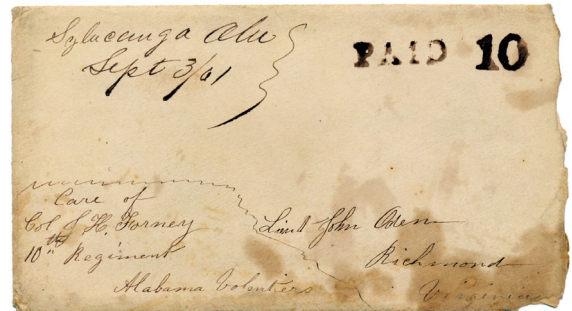 Sylacauga Ala
Sept 3/61
PAID 10
Care of
Col J. H. Forney
10th Regiment
Alabama Volentiers
Lieut John Oden
Richmond
Virginia